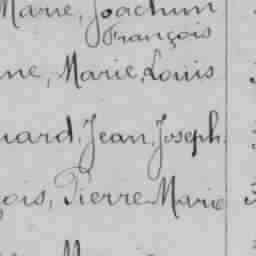 Marie, Joachim
François
ne, Marie, Louis
uard, Jean, Joseph
çois, Pierre Marie